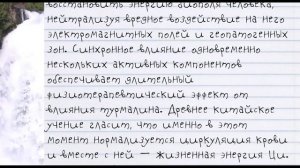 восстановить энергию биополя человека,
нейтрализуя вредное воздействие на него
электромагнитных полей и геопатогенных
зон. Синхронное влияние одновременно
нескольких активных компонентов
обеспечивает длительный
физиотерапевтический эффект от
влияния турмалина. Древнее китайское
учение гласит, что именно в этот
момент нормализуется циркуляция крови
и вместе с ней – жизненная энергия Ци.